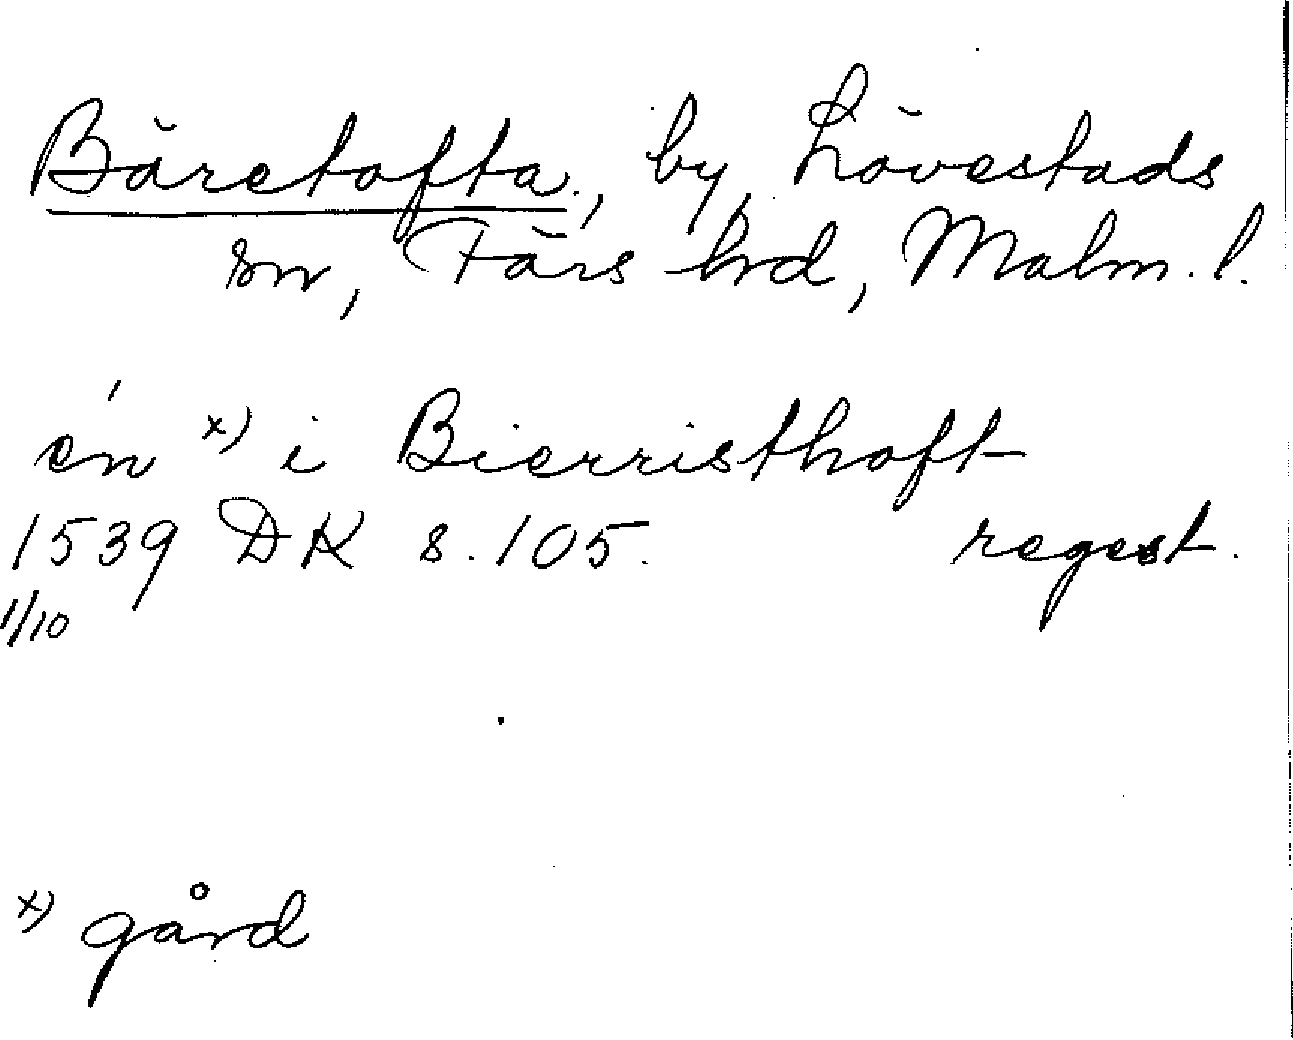 Bäretofta, by, Lövestads
sn, Färs hd, Malm. l.
én x) i Bierristhoft
1539 DK s. 105. regest.
1/10
x) gård